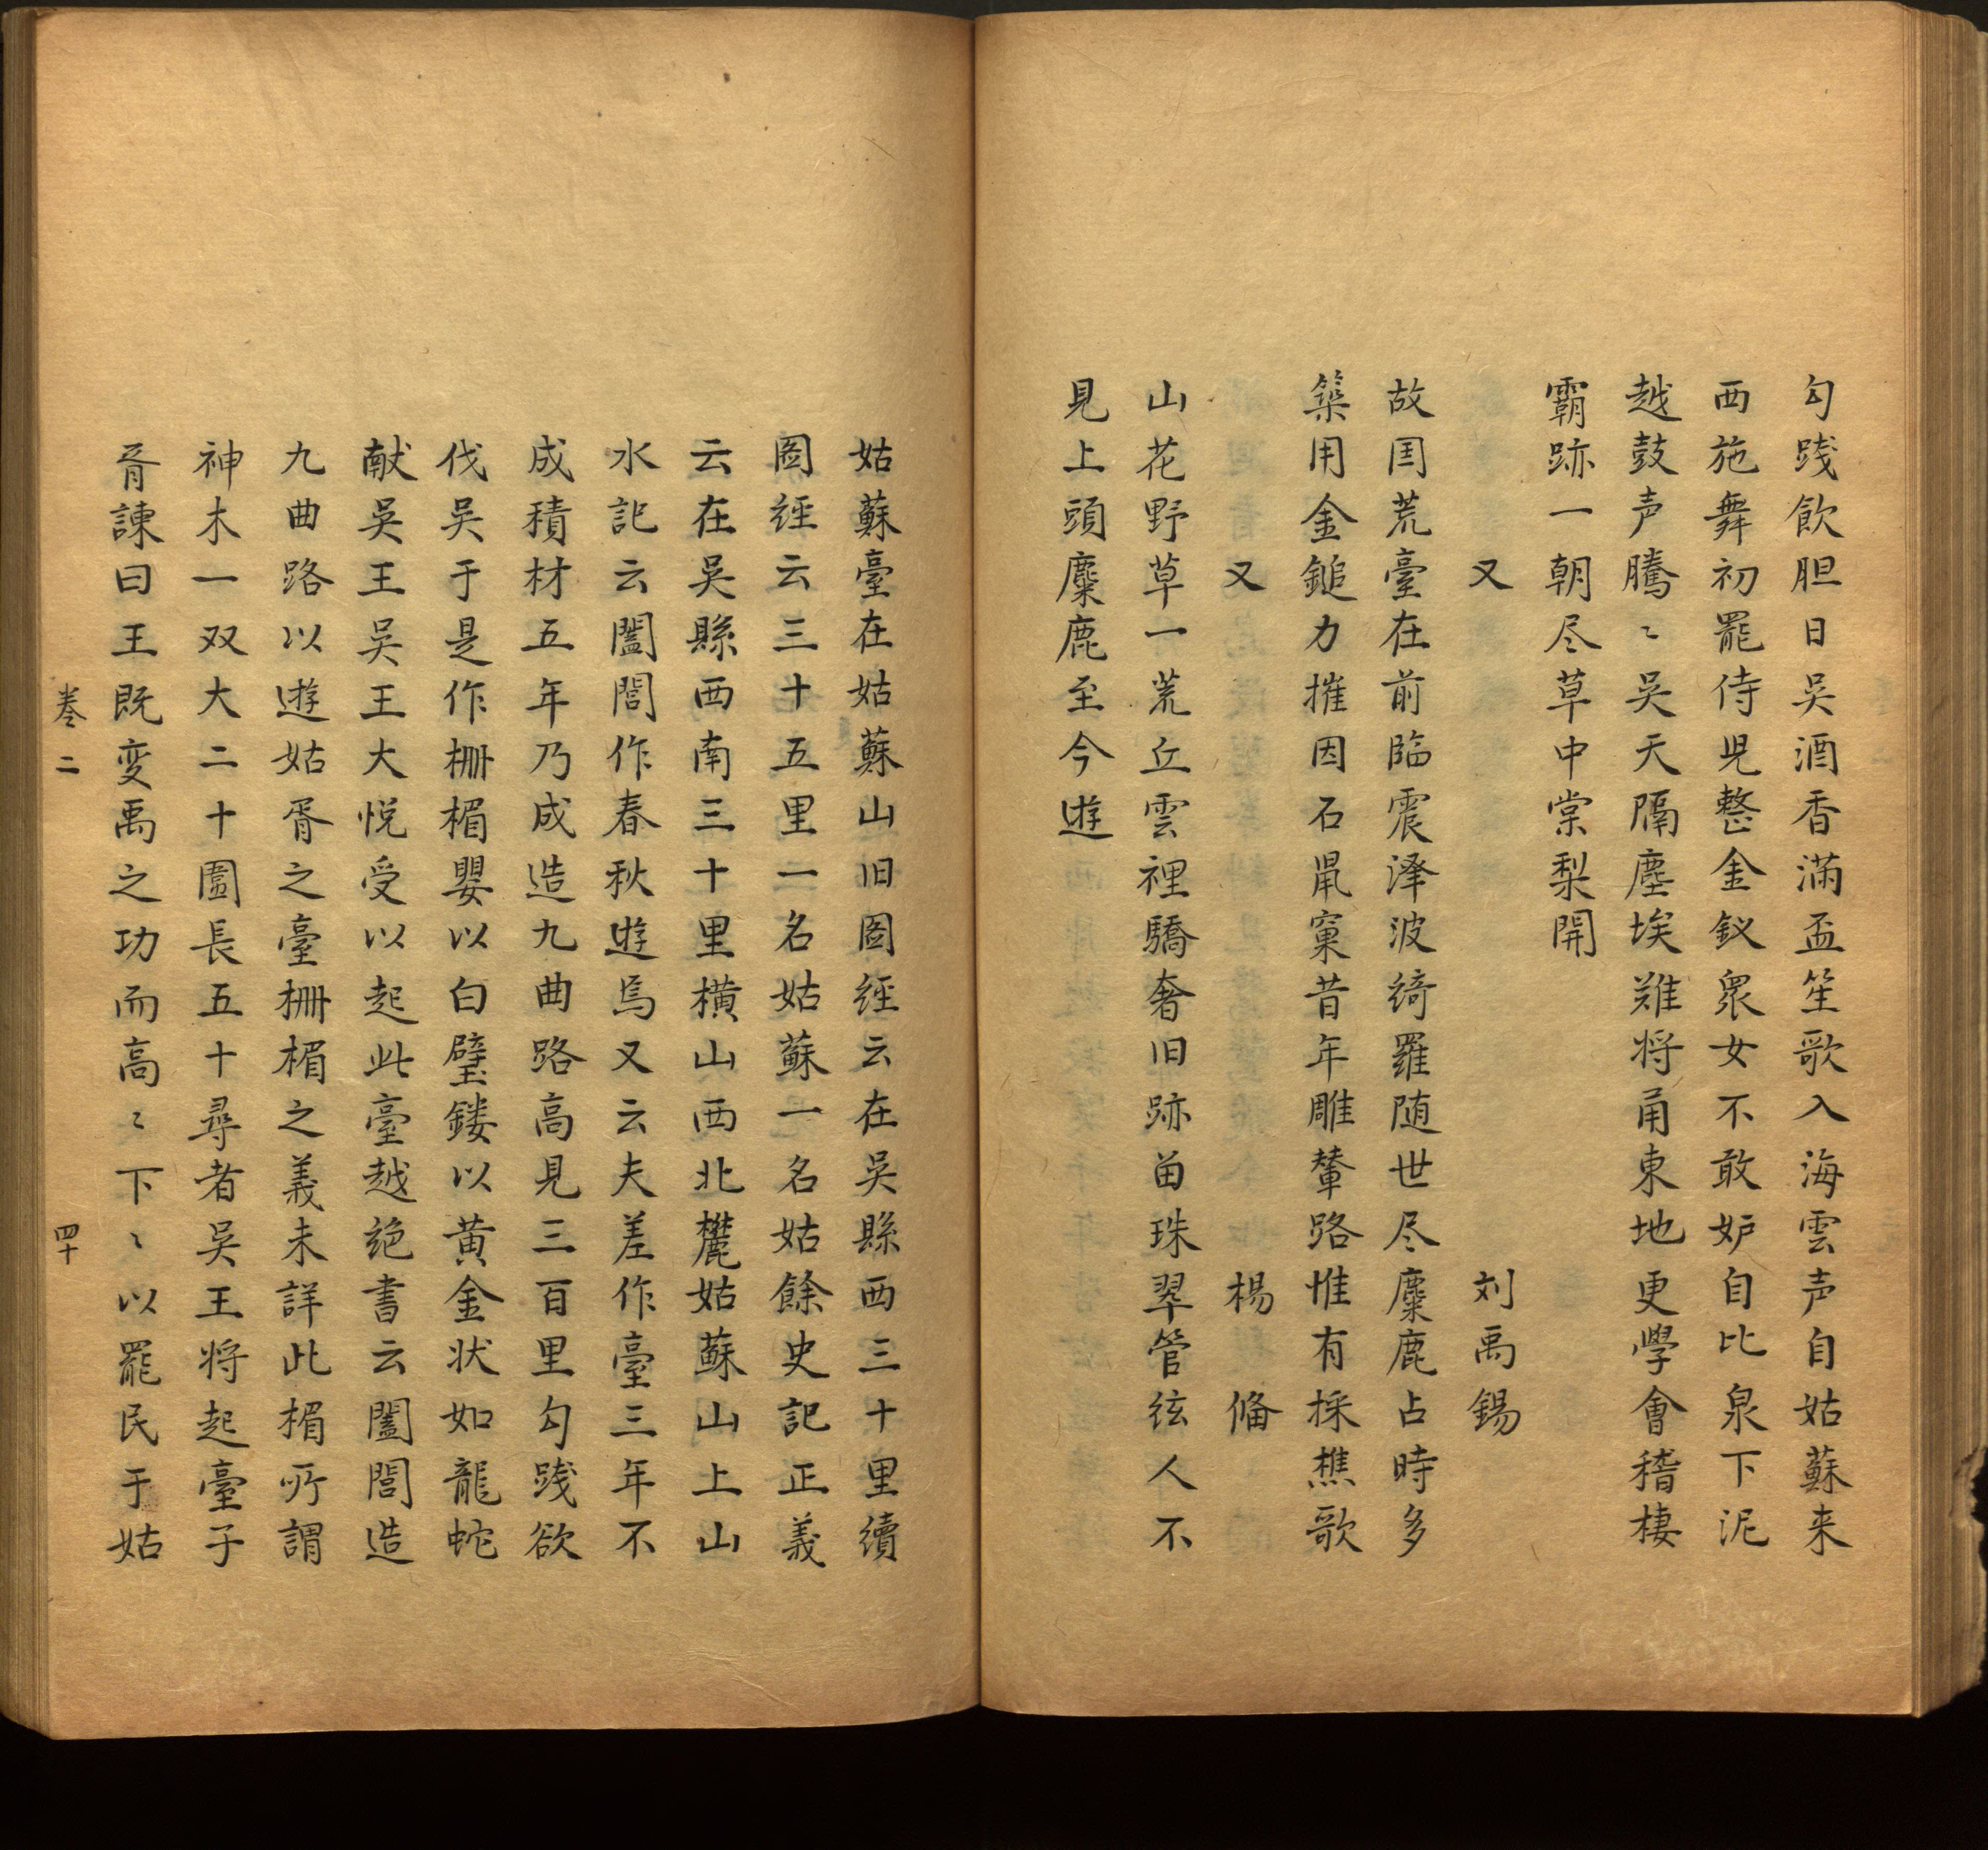 勾踐飲胆日吳酒香滿盃笙歌入海雲声自姑蘇来
西施舞初罷侍児整金釵衆女不敢妒自比泉下泥
越鼓声騰〻吳天隔塵埃難将甬東地更學會稽棲
霸跡一朝尽草中棠梨開
又 刘禹錫
故囯荒臺在前臨震泽波綺羅随世尽麋鹿占時多
築用金鎚力摧因石鼠窠昔年雕輦路惟有採樵歌
又 楊俻
山花野草一荒丘雲裡驕奢旧跡畄珠翠管絃人不
見上頭麋鹿至今遊
姑蘇臺在姑蘇山旧圖經云在吳縣西三十里續
圖經云三十五里一名姑蘇一名姑餘史記正義
云在吳縣西南三十里橫山西北麓姑蘇山上山
水記云闔閭作春秋遊焉又云夫差作臺三年不
成積材五年乃成造九曲路高見三百里勾踐欲
伐吴于是作柵楣嬰以白璧鏤以黄金状如龍蛇
献吳王吴王大悅受以起此臺越絶書云闔閭造
九曲路以遊姑胥之臺柵楣之義未詳此楣所謂
神木一双大二十圍長五十尋者吴王将起臺子
胥諫曰王既变禹之功而高〻下〻以罷民于姑
卷二 四十